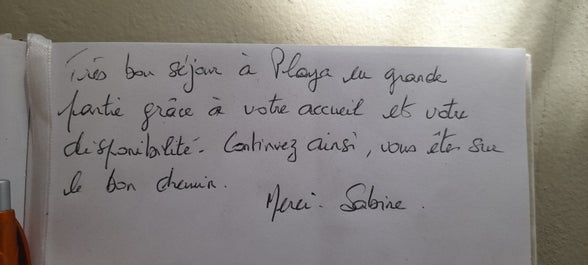 Très bon séjour à Playa en grande
partie grâce à votre accueil et votre
disponibilité. Continuez ainsi, vous êtes sur
le bon chemin.
Merci. Sabine.